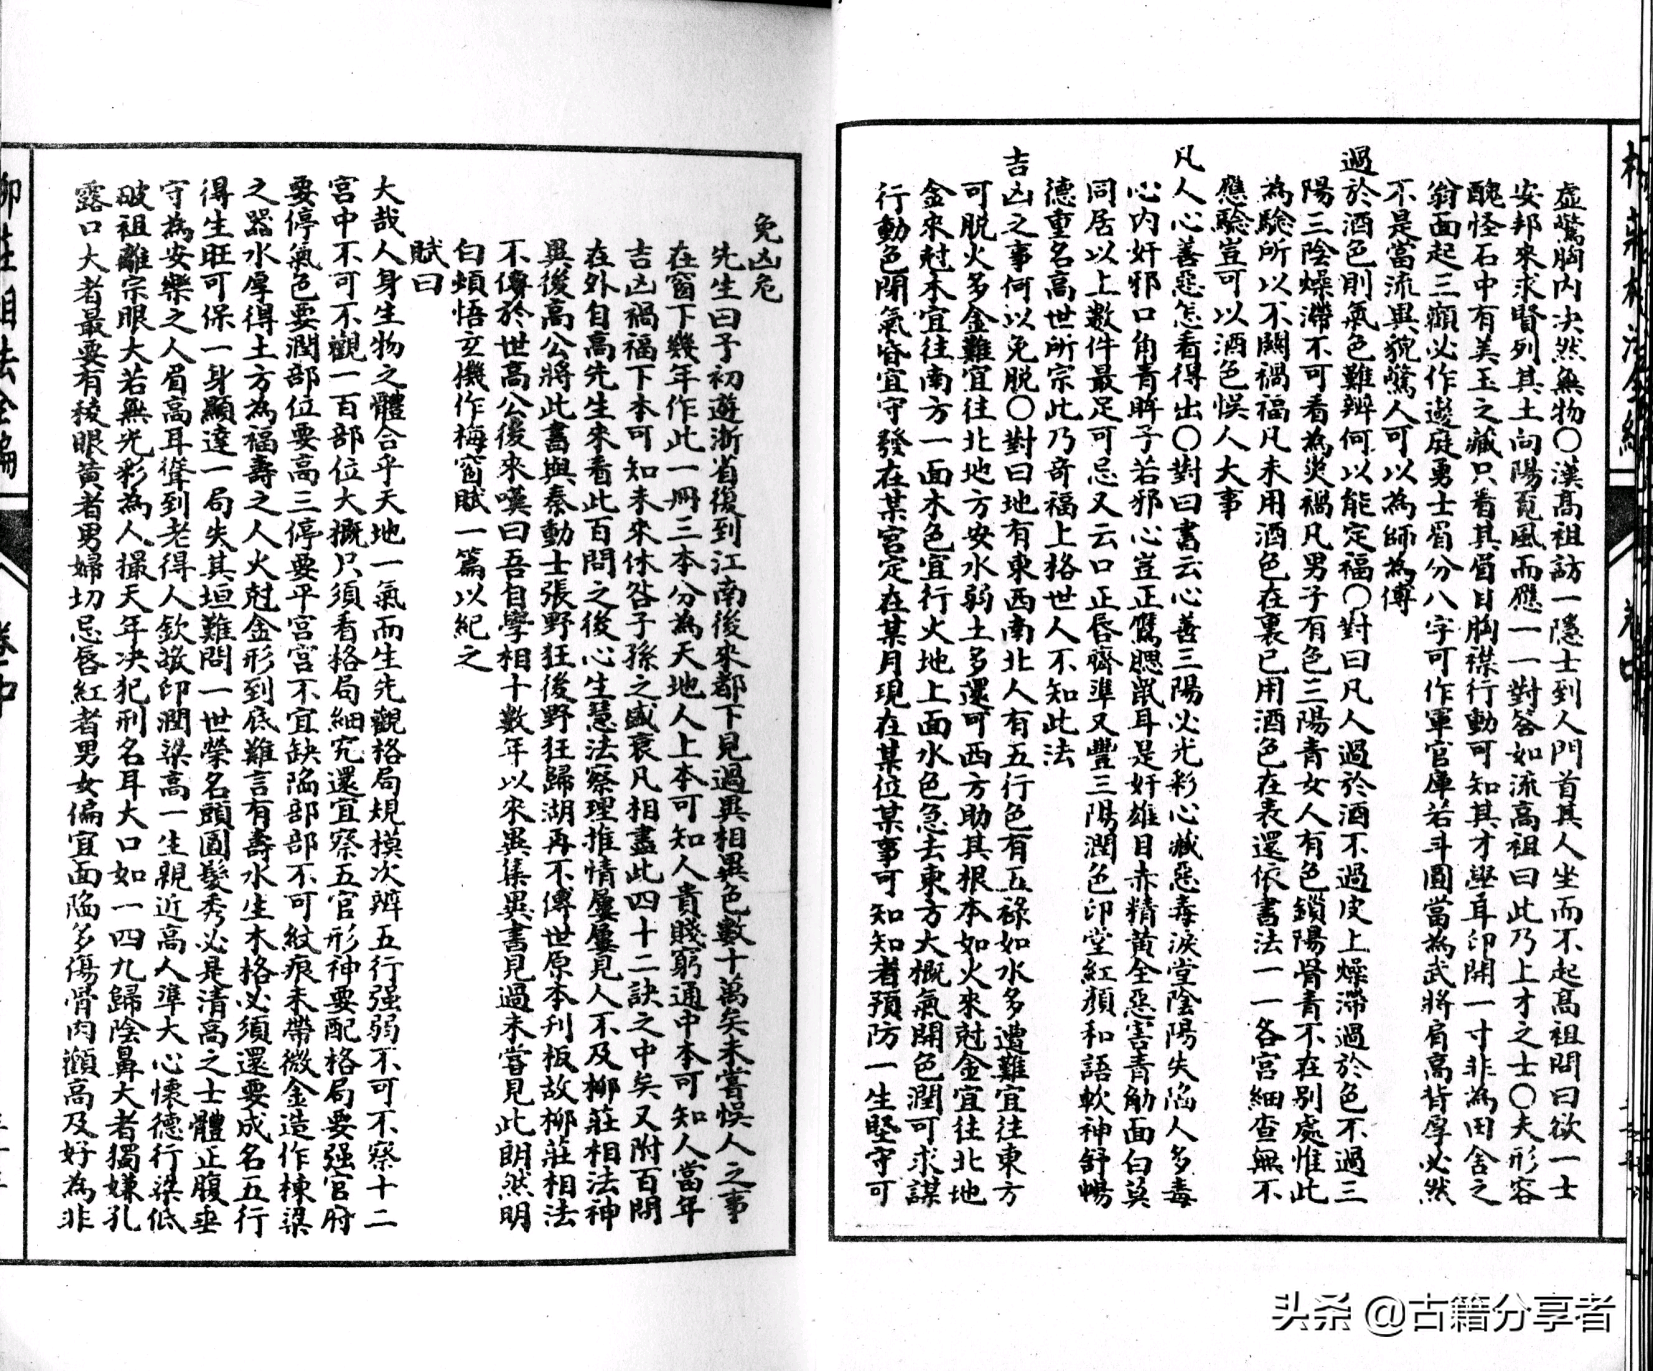 虛驚胸內决然無物〇漢高祖訪一隱士到人門首其人坐而不起高祖問曰欲一士
安邦來求賢列其土向陽覓風而應一一對答如流高祖曰此乃上才之士〇夫形容
醜怪石中有美玉之藏只看其眉目胸襟行動可知其才學耳卯開一寸非為田舍之
翁面起三顴必作邊庭勇士眉分八字可作軍官庫若斗圓當為武將肩高背厚必然
不是當流異貌驚人可以為師為傅
過於酒色則氣色難辨何以能定福〇對曰凡人過於酒不過皮上燥滯過於色不過三
陽三陰燥滯不可看為災禍凡男子有色三陽青女人有色鎖陽骨青不在別處惟此
為驗所以不關禍福凡未用酒色在裏已用酒色在表還依書法一一各宮細查無不
應驗豈可以酒色悮人大事
凡人心善惡怎看得出〇對曰書云心善三陽火光彩心藏惡毒淚堂陰陽失陷人多毒
心內奸邪口角青眸子若邪心豈正鷹腮鼠耳是奸雄目赤精黃全惡害青觔面白莫
同居以上數件最足可忌又云口正唇齊準又豐三陽潤色印堂紅顏和語軟神舒暢
德重名高世所宗此乃奇福上格世人不知此法
吉凶之事何以免脫〇對曰地有東西南北人有五行色有五祿如水多遭難宜往東方
可脫火多金難宜往北地方安水弱土多還可西方助其根本如火來尅金宜往北地
金來尅木宜往南方一面木色宜行火地上面水色急去東方大概氣開色潤可求謀
行動色閉氣昏宜守發在某宮定在某月現在某位某事可知知者預防一生堅守可
免凶危
先生曰予初遊浙省復到江南後來都下見過異相異色數十萬矣未嘗悮人之事
在窗下幾年作此一冊三本分為天地人上本可知人貴賤窮通中本可知人當年
吉凶禍福下本可知未來休咎子孫之盛衰凡相盡此四十二訣之中矣又附百問
在外自高先生來看此百問之後心生慧法察理推情屢屢見人不及柳莊相法神
異後高公將此書與秦動士張野狂後野狂歸湖再不傳世原本刊板故柳莊相法
不傳於世高公後來嘆曰吾自學相十數年以來異集異書見過未嘗見此朗然明
白頓悟玄機作梅窗賦一篇以紀之
賦曰
大哉人身生物之體合乎天地一氣而生先觀格局規模次辨五行强弱不可不察十二
宮中不可不觀一百部位大概只須看格局細究還宜察五官形神要配格局要强官府
要停氣色要潤部位要高三停要平宮宮不宜缺陷部部不可紋痕未帶微金造作棟梁
之器水厚得土方為福壽之人火尅金形到底難言有壽水生木格必須還要成名五行
得生旺可保一身顯達一局失其垣難問一世榮名頭圓髮秀必是清高之士體正腹垂
守為安樂之人眉高耳聳到老得人欽敬印潤梁高一生親近高人準大心懷德行梁低
破祖離宗眼大若無光彩為人撮天年決犯刑名耳大口如一四九歸陰鼻大者獨嫌孔
露口大者最要有稜眼黃者男婦切忌唇紅者男女偏宜面陷多傷骨肉顴高及好為非
头条 @古籍分享者